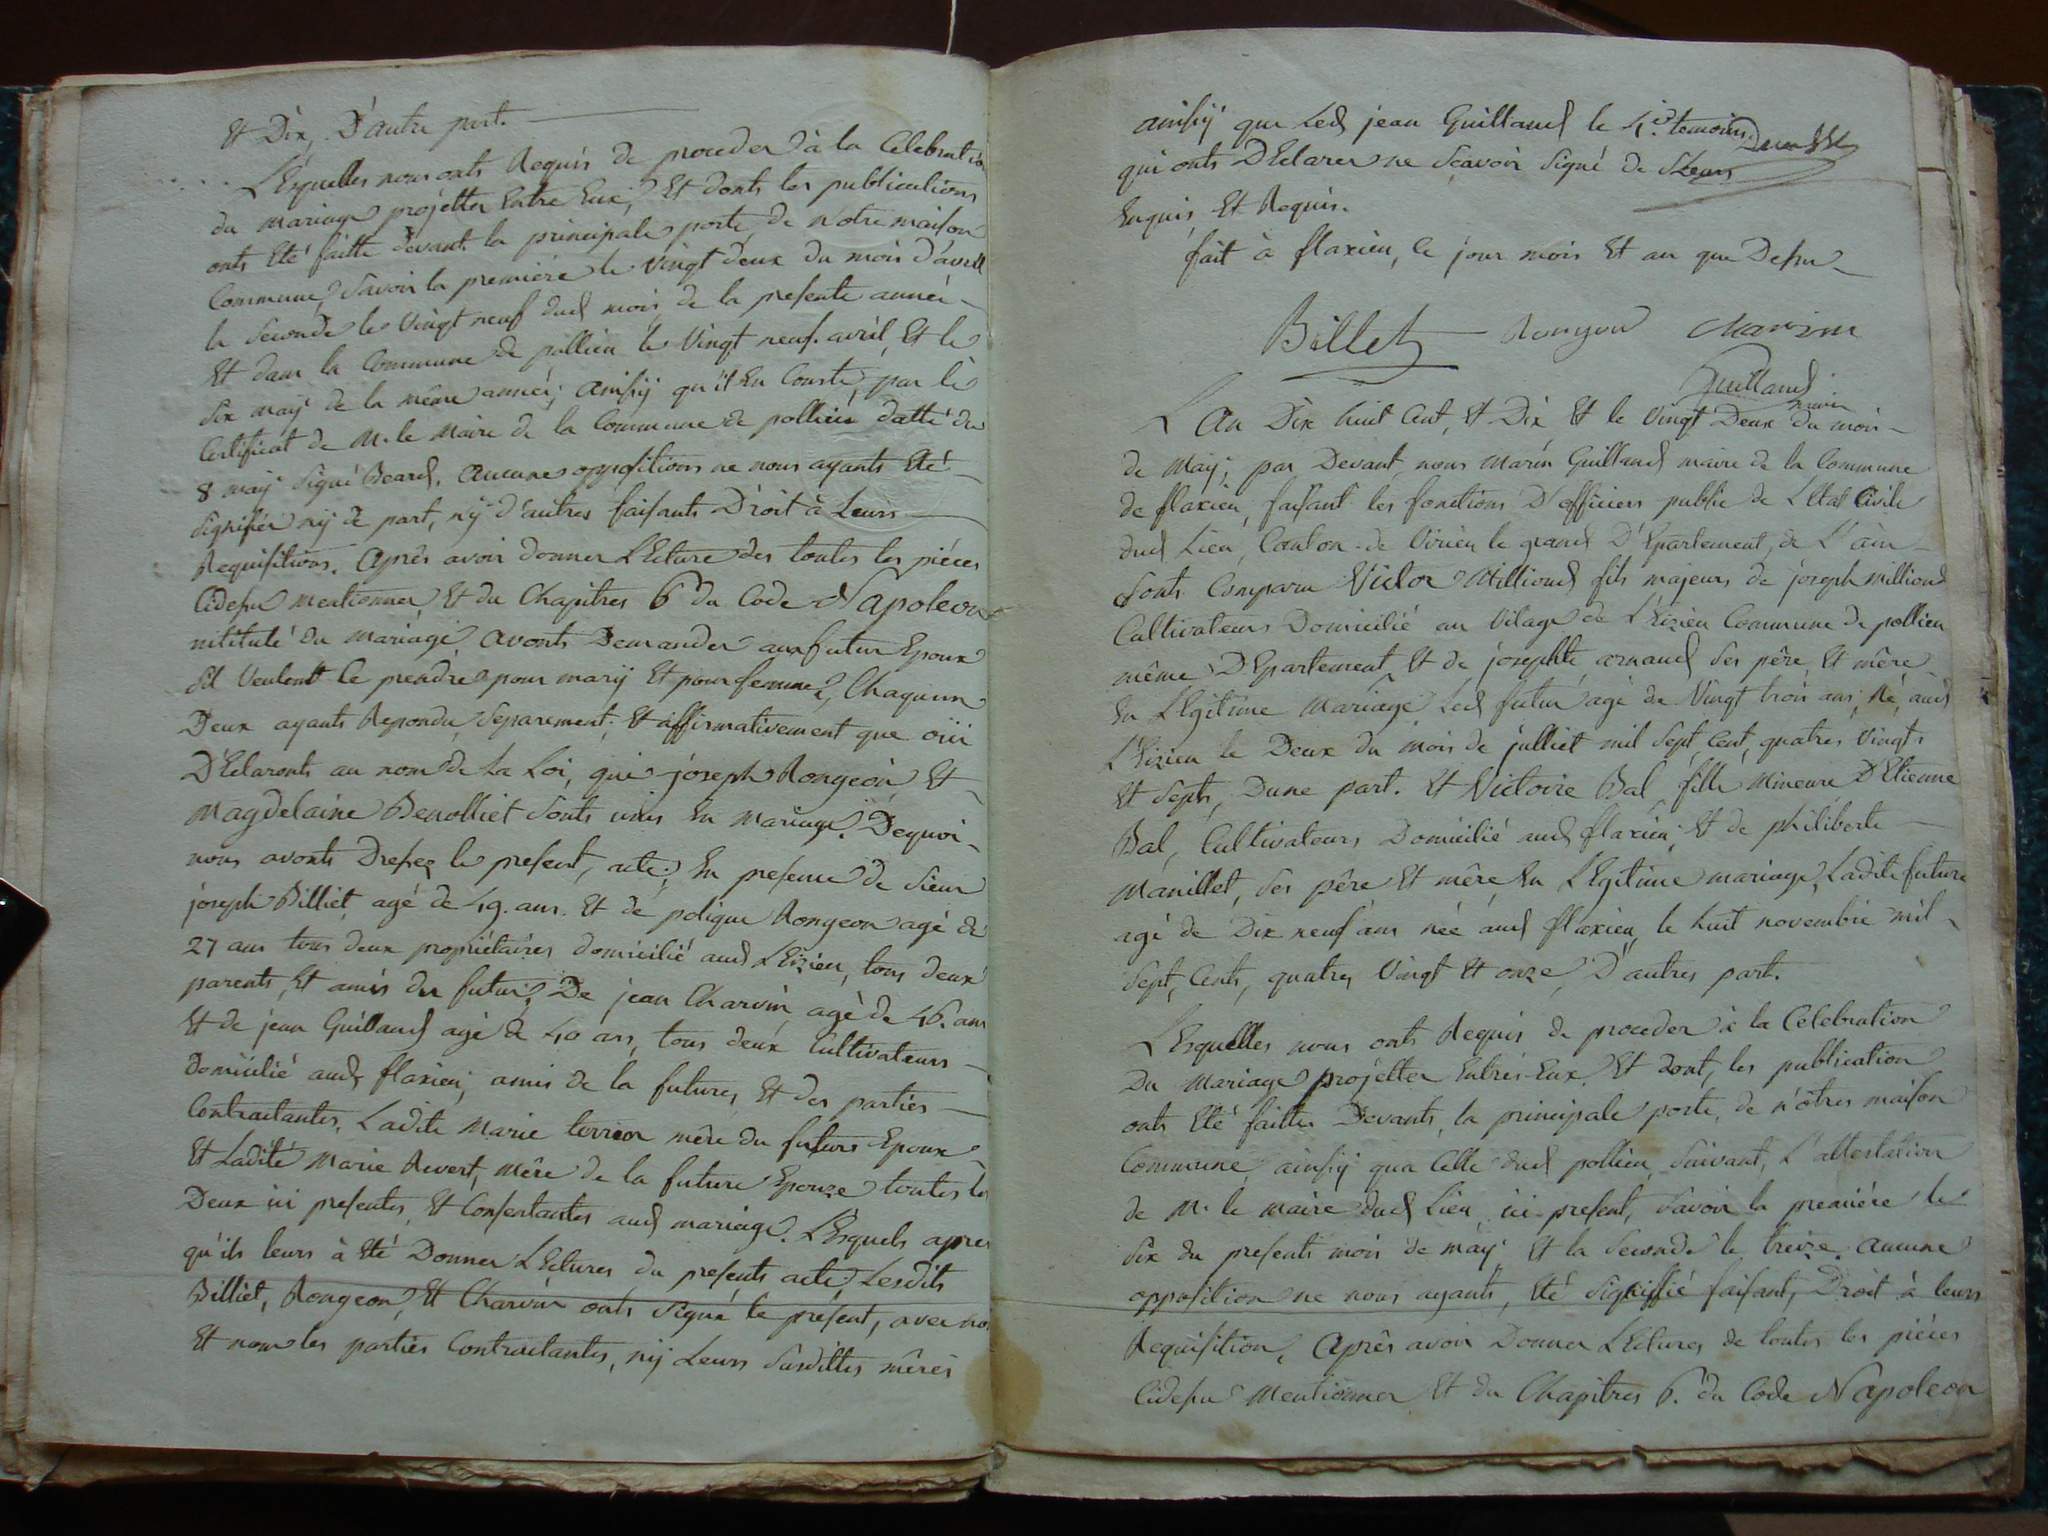 Et Dix, D'autre part.
L'Esquelles nous onts Requis de proceder à la Celebration
du mariage projetter Entre Eux, Et donts les publications
onts Eté faitte devant la principale porte de Notre maison
Commune, Savoir la premiére le Vingt deux du mois d'avril
la Seconde le Vingt neuf dud mois de la presente année
Et dans la Commune de pollieu le Vingt neuf avril, Et le
Six maÿ de la même année, ainsÿ qu'il En Conste, par le
Certificat de Mr. le Maire de la Commune de pollieu datté du
8 maÿ Signé Beard. Aucune oppositions ne nous ayants Eté
Signifier nÿ de part, nÿ d'autres faisants Droit à Leurs
Requisitions. Après avoir donner L'Ecture des toutes les piéces
Cidesu mentionner, Et du Chapitres 6 du Code Napoleon
intitulé du Mariage, avonts Demander aux futur Epoux
Sil Veulent Se prendre pour marÿ Et pour femme, Chaqu'un
Deux ayants Repondu Separement, Et affirmativement que oüi
D'Eclaronts au nom de La Loi, que joseph Rongeon Et
Magdelaine Benolliet Sonts unis En Mariage. Dequoi
nous avonts Dresez le present acte, En presence de Sieur
joseph Billiet agé de 49. ans. Et de polique Rongeon agé de
27 ans tous deux propriétaires domicilié aud L'Eizieu, tous deux
parents, Et amis du futur, De jean Charvin agé de 46. ans
Et de jean Guilland agé de 40 ans, tous deux Cultivateurs
Domicilié aud flaxieu, amis de la future, Et des parties
Contractantes, Ladite Marie terrier mére du futurs Epoux
Et Ladite Marie Revert, Mére de la future Epouze toutes les
Deux ici presentes, Et Consentantes aud mariage. L'Esquels apres
qu'ils leurs à Eté Donner L'Ectures du presents acte, Lesdits
Billiet, Rongeon, Et Charvin onts Signé le présent, avec nous
Et non les parties Contractantes, nÿ Leurs Susdittes mères
ainsÿ que Led jean Guilland le 4e. temoins
qui onts D'Eclarer ne Sçavoir Signé de
Enquis, Et Requis.
fait à flaxieu, le jour mois Et an que Desu
Billet Rongeon Charvin
Guilland
maire
L'An Dix huit Cent, Et Dix Et le Vingt Deux du mois
de Maÿ, par Devant nous Marin Guilland maire de la Commune
de flaxieu, faisant les fonctions D'officiers public de L'Etat Civile
dud Lieu, Canton de Virieu le grand D'Epartement, de L'ain
Sonts Comparu Victor Milliond fils majeurs de joseph milliond
Cultivateurs Domicilié au Vilage de L'Eizieu Commune de pollieu
même D'Epartement, Et de josephte arnaud Ses pére, Et mére
En L'Egitime Mariage, Led futur agé de Vingt trois ans, Né, aud
L'Eizieu le Deux du mois de julliet mil Sept Cent, quatres Vingts
Et Septs, Dune part. Et Victoire Bal fille Mineure D'Etienne
Bal, Cultivateurs Domicilié aud flaxieu, Et de philiberte
Manillet, Ses pére Et mére En L'Egitime mariage, Ladite future
agé de Dix neuf ans née aud flaxieu, le huit novembre mil
Sept, Cents, quatres Vingt Et onze, D'autres part.
L'Esquelles nous onts Requis de proceder à la Celebration
Du Mariage projetter Entres-Eux, Et dont, les publication
onts Eté faittes Devants, la principale porte, de nôtres maison
Commune, ainsÿ qua Celle dud pollieu Suivant, L'attestation
de Mr. le maire dud Lieu, ici present, Savoir la premiére le
Six du presents mois de maÿ, Et la Seconde le treize. aucune
opposition ne nous ayants, Eté Signiffié faisant, Droit à leurs
Requisition, Après avoir Donner L'Ectures de toutes les piéces
Cidesu Mentionner Et du Chapitres 6. du Code Napoleon